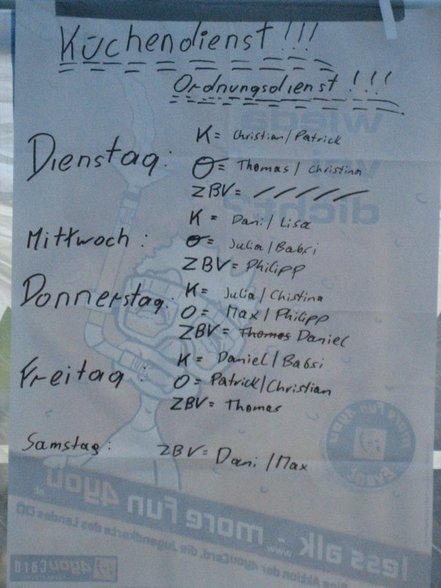 Küchendienst!!!
Ordnungsdienst!!!
Dienstag:
K= Christian/Patrick
O= Thomas/Christina
ZBV=
Mittwoch:
K= Dani/Lisa
O= Julia/Babsi
ZBV= Philipp
Donnerstag:
K= Julia/Chistina
O= Max/Philipp
ZBV= Thomas Daniel
Freitag:
K= Daniel/Babsi
O= Patrick/Christian
ZBV= Thomas
Samstag: ZBV= Dani/Max
wieder
voll
dicht?
more Fun 4you
Event
less alk - more Fun 4you.at
Eine Aktion der 4youCard, die Jugendkarte des Landes OÖ
4youCard